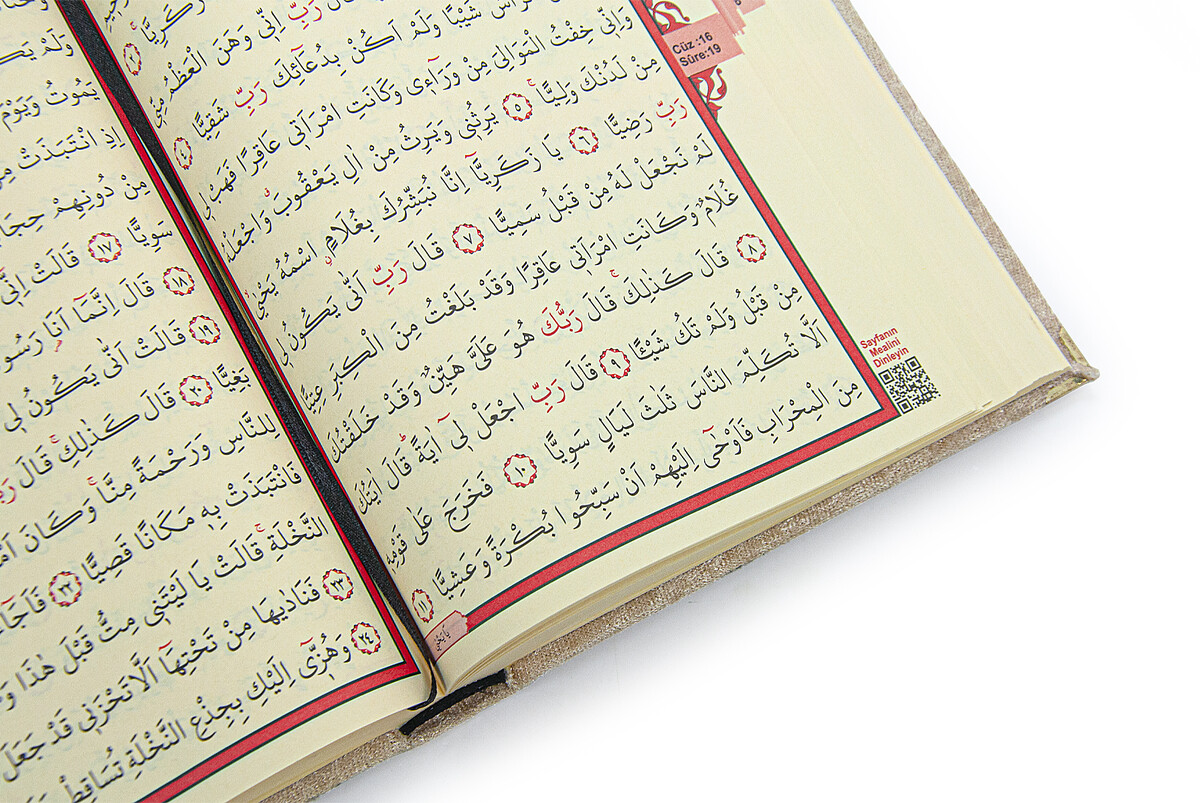 زَكَرِيَّا
رَبِّ اِنّ۪ي وَهَنَ الْعَظْمُ مِنّ۪ي
شَيْبًا وَلَمْ اَكُنْ بِدُعَٓائِكَ رَبِّ شَقِيًّا ٤
وَاِنّ۪ي خِفْتُ الْمَوَالِيَ مِنْ وَرَٓاء۪ي وَكَانَتِ امْرَاَت۪ي عَاقِرًا فَهَبْ ل۪ي
مِنْ لَدُنْكَ وَلِيًّا ٥ يَرِثُن۪ي وَيَرِثُ مِنْ اٰلِ يَعْقُوبَ وَاجْعَلْهُ
رَبِّ رَضِيًّا ٦ يَا زَكَرِيَّٓا اِنَّا نُبَشِّرُكَ بِغُلَامٍ اسْمُهُ يَحْيٰى
لَمْ نَجْعَلْ لَهُ مِنْ قَبْلُ سَمِيًّا ٧ قَالَ رَبِّ اَنّٰى يَكُونُ ل۪ي
غُلَامٌ وَكَانَتِ امْرَاَت۪ي عَاقِرًا وَقَدْ بَلَغْتُ مِنَ الْكِبَرِ عِتِيًّا
٨ قَالَ كَذٰلِكَ قَالَ رَبُّكَ هُوَ عَلَيَّ هَيِّنٌ وَقَدْ خَلَقْتُكَ
مِنْ قَبْلُ وَلَمْ تَكُ شَيْـًٔا ٩ قَالَ رَبِّ اجْعَلْ ل۪ٓي اٰيَةً قَالَ اٰيَتُكَ
اَلَّا تُكَلِّمَ النَّاسَ ثَلٰثَ لَيَالٍ سَوِيًّا ١٠ فَخَرَجَ عَلٰى قَوْمِه۪
مِنَ الْمِحْرَابِ فَاَوْحٰٓى اِلَيْهِمْ اَنْ سَبِّحُوا بُكْرَةً وَعَشِيًّا ١١
يَا يَحْيٰى
Cüz :16
Sûre:19
Sayfanın
Mealini
Dinleyin
وَلَمْ
يَمُوتُ وَيَوْمَ
اِذِ انْتَبَذَتْ
مِنْ دُونِهِمْ
سَوِيًّا ١٧ قَالَتْ اِنّ۪ٓي
١٨ قَالَ اِنَّمَٓا اَنَا
١٩ قَالَتْ اَنّٰى يَكُونُ ل۪ي
بَغِيًّا ٢٠ قَالَ كَذٰلِكِ قَالَ
لِلنَّاسِ وَرَحْمَةً مِنَّا وَكَانَ
فَانْتَبَذَتْ بِه۪ مَكَانًا قَصِيًّا ٢٢
النَّخْلَةِ قَالَتْ يَا لَيْتَن۪ي مِتُّ قَبْلَ هٰذَا
٢٣ فَنَادٰيهَا مِنْ تَحْتِهَٓا اَلَّا تَحْزَن۪ي قَدْ جَعَلَ
٢٤ وَهُزّ۪ٓي اِلَيْكِ بِجِذْعِ النَّخْلَةِ تُسَاقِطْ